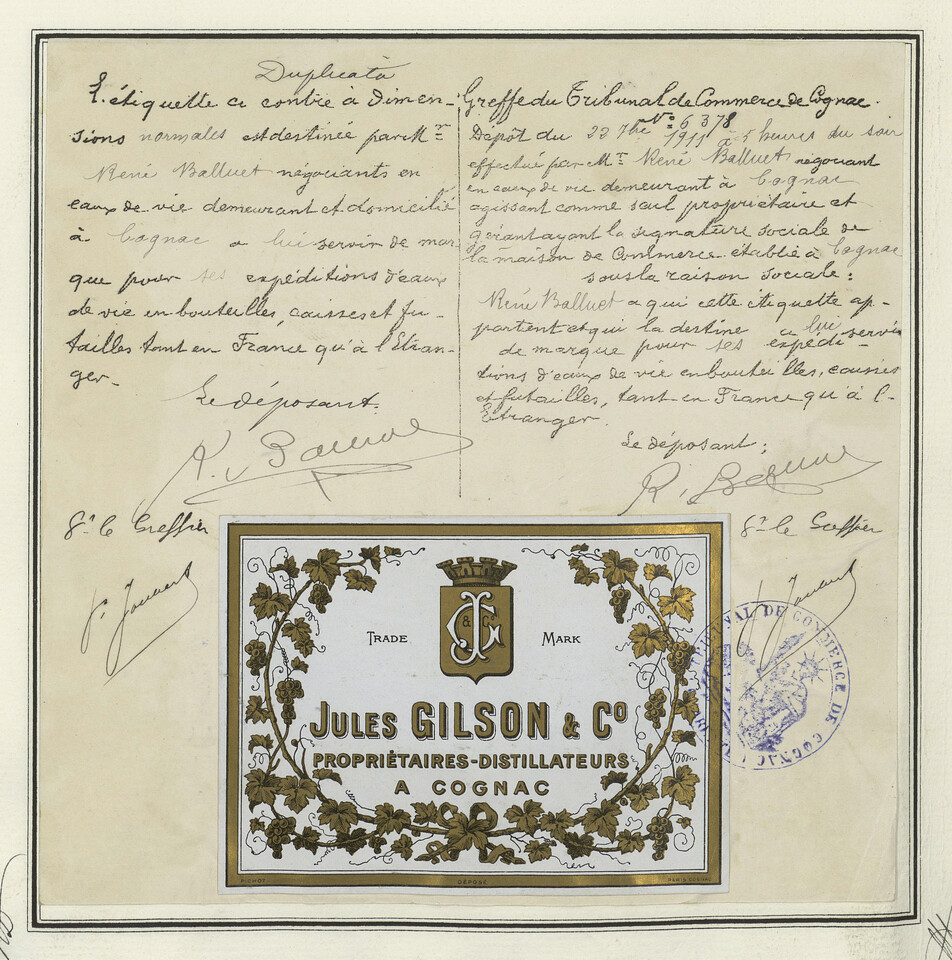 Duplicata
L'étiquette ci contre à dimen-
sions normales est destinée par Mr
René Balluet négociants en
eaux de vie demeurant et domicilié
à Cognac a lui servir de mar
que pour ses expéditions d'eaux
de vie en bouteilles, caisses et fu-
tailles tant en France qu'à l'Etran-
ger.
Le déposant.
Le Greffier
Greffe du Tribunal de Commerce de Cognac.
No 6378
Dépôt du 22 7bre 1911 à 5 heures du soir
effectué par Mr René Balluet négociant
en eaux de vie demeurant à Cognac
agissant comme seul propriétaire et
gérant ayant la signature sociale de
la maison de Commerce établie à Cognac
sous la raison sociale:
René Balluet a qui cette étiquette ap-
partient et qui la destine a lui servir
de marque pour ses expédi-
tions d'eaux de vie en bouteilles, caisses
et futailles, tant en France qu'à l'-
Etranger.
Le déposant:
Le Greffier
TRADE MARK
J & Co G
JULES GILSON & Co
PROPRIÉTAIRES-DISTILLATEURS
A COGNAC
PICHOT DÉPOSÉ PARIS COGNAC
TRIBUNAL DE COMMERCE DE COGNAC